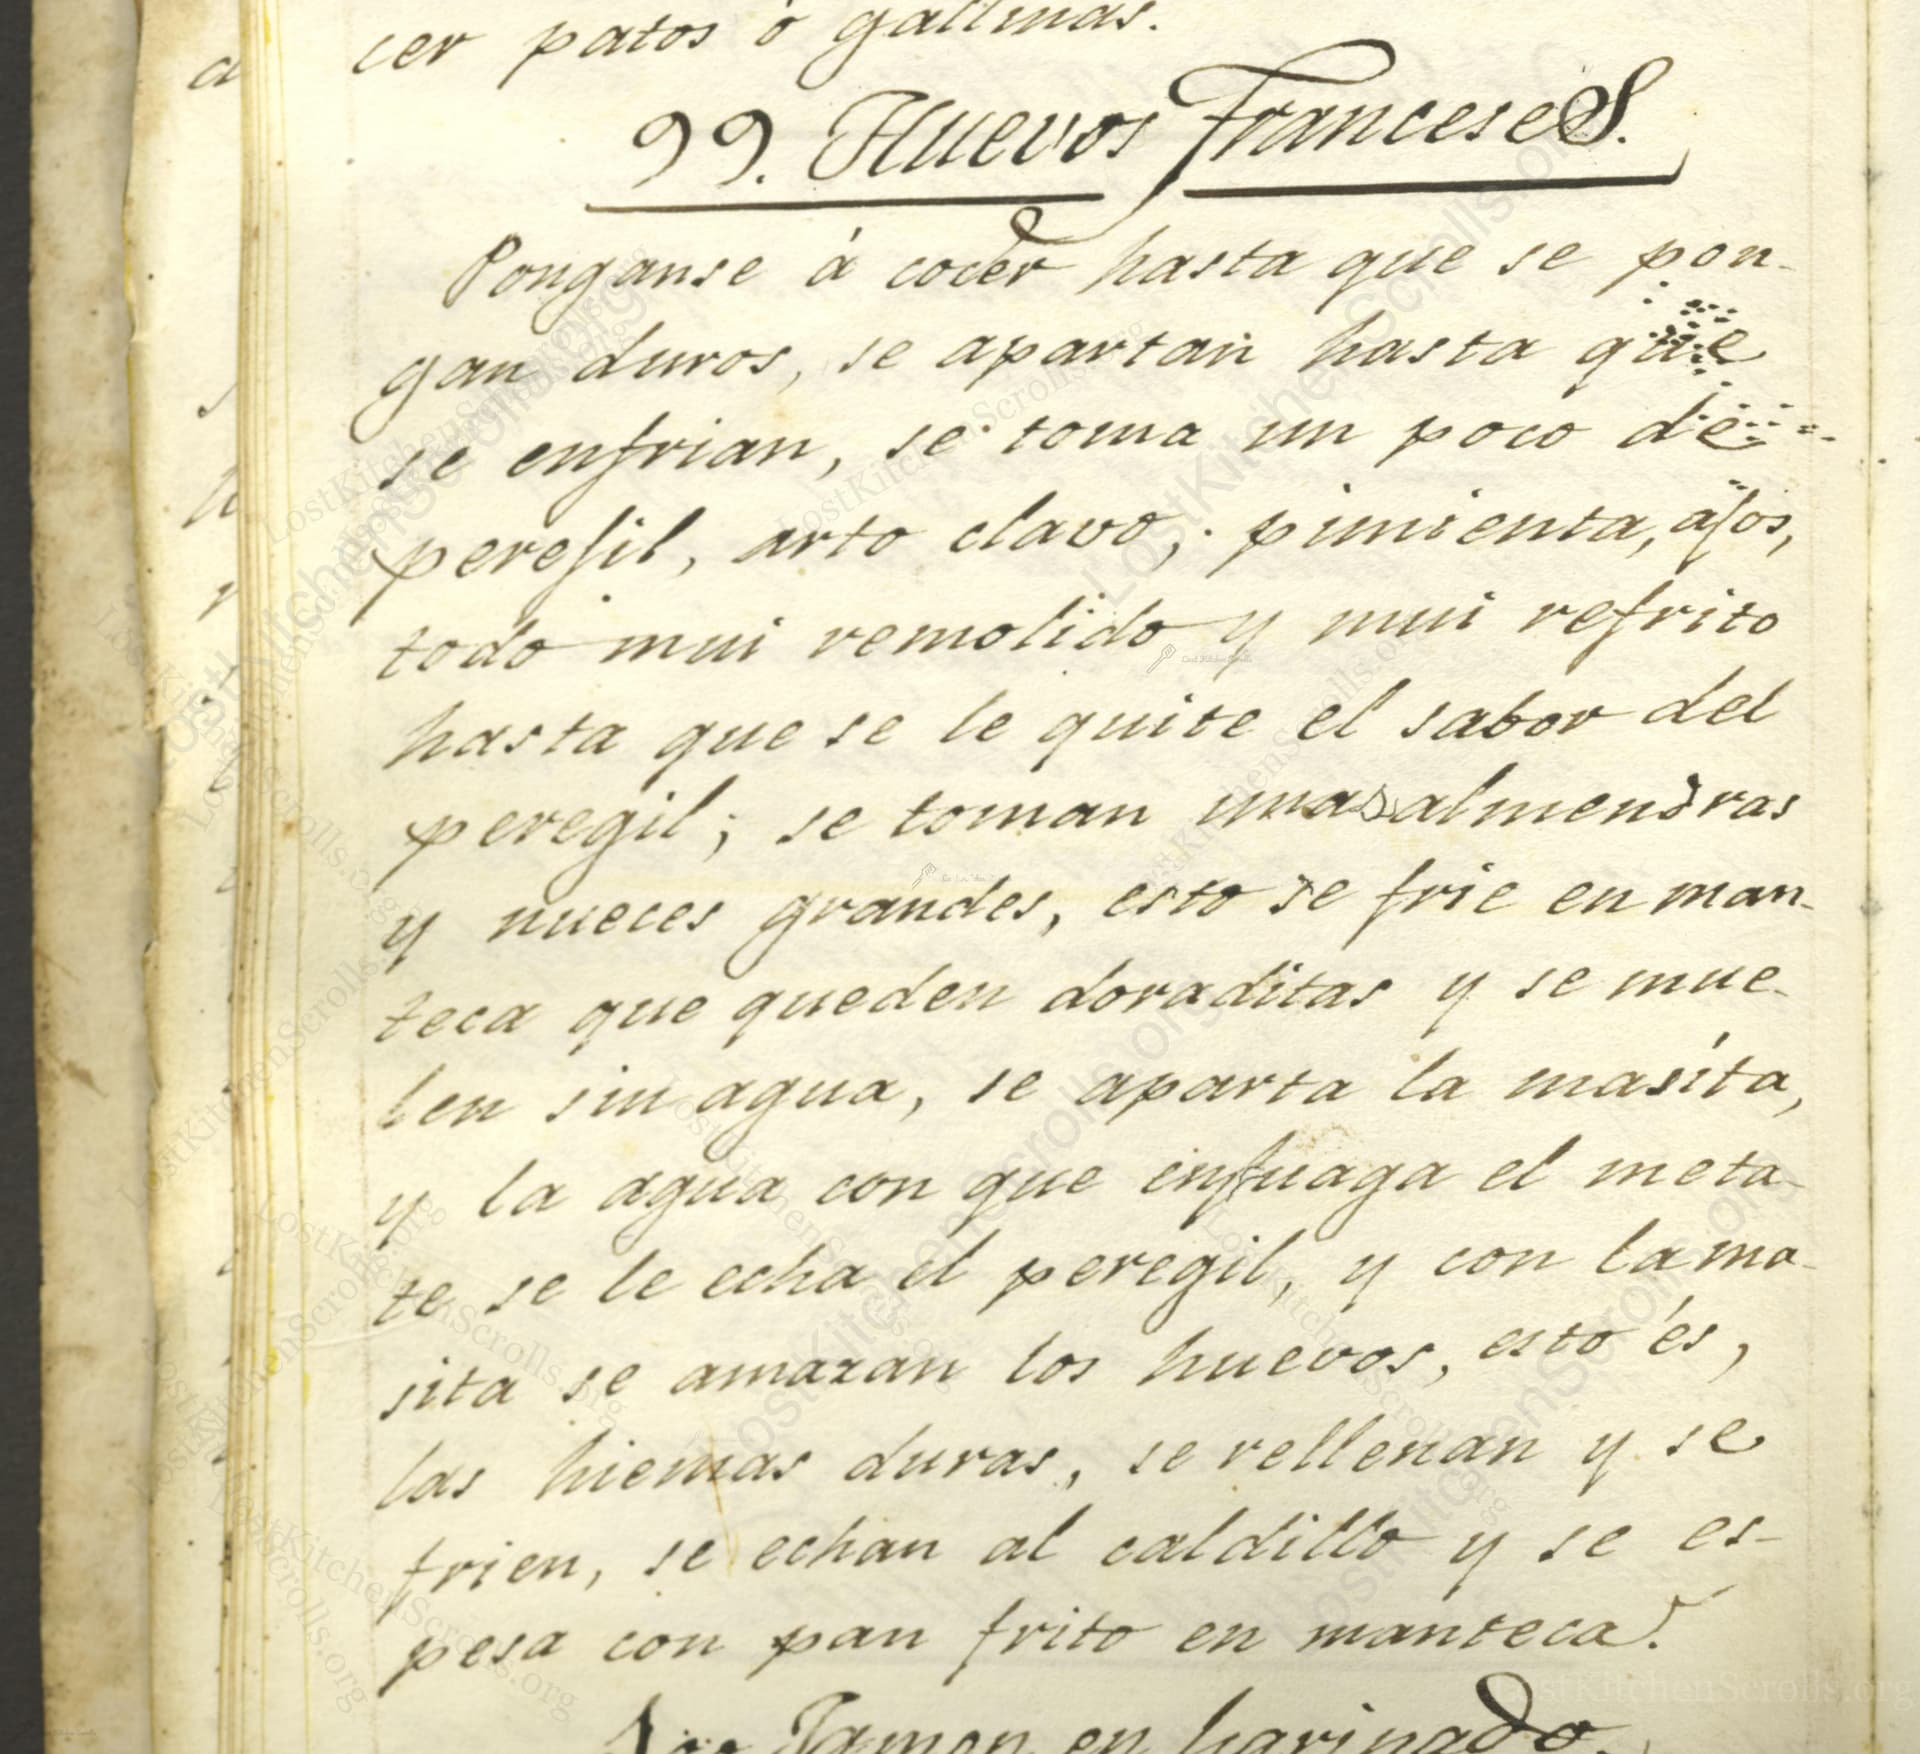 cer patos ó gallinas.
99. Huevos Franceses.
Ponganse á cocer hasta que se pon-
gan duros, se apartan hasta que
se enfrian, se toma un poco de
perejil, arto clavo, pimienta, ajos,
todo mui remolido y mui refrito
hasta que se le quite el sabor del
peregil; se toman unas almendras
y nueces grandes, esto se frie en man-
teca que queden doraditas y se mue-
len sin agua, se aparta la masita,
y la agua con que enjuaga el meta-
te se le echa el peregil, y con la ma-
sita se amazan los huevos, esto és,
las hiemas duras, se rellenan y se
frien, se echan al caldillo y se es-
pesa con pan frito en manteca.
Jamon en harinado.
LostKitchenScrolls.org